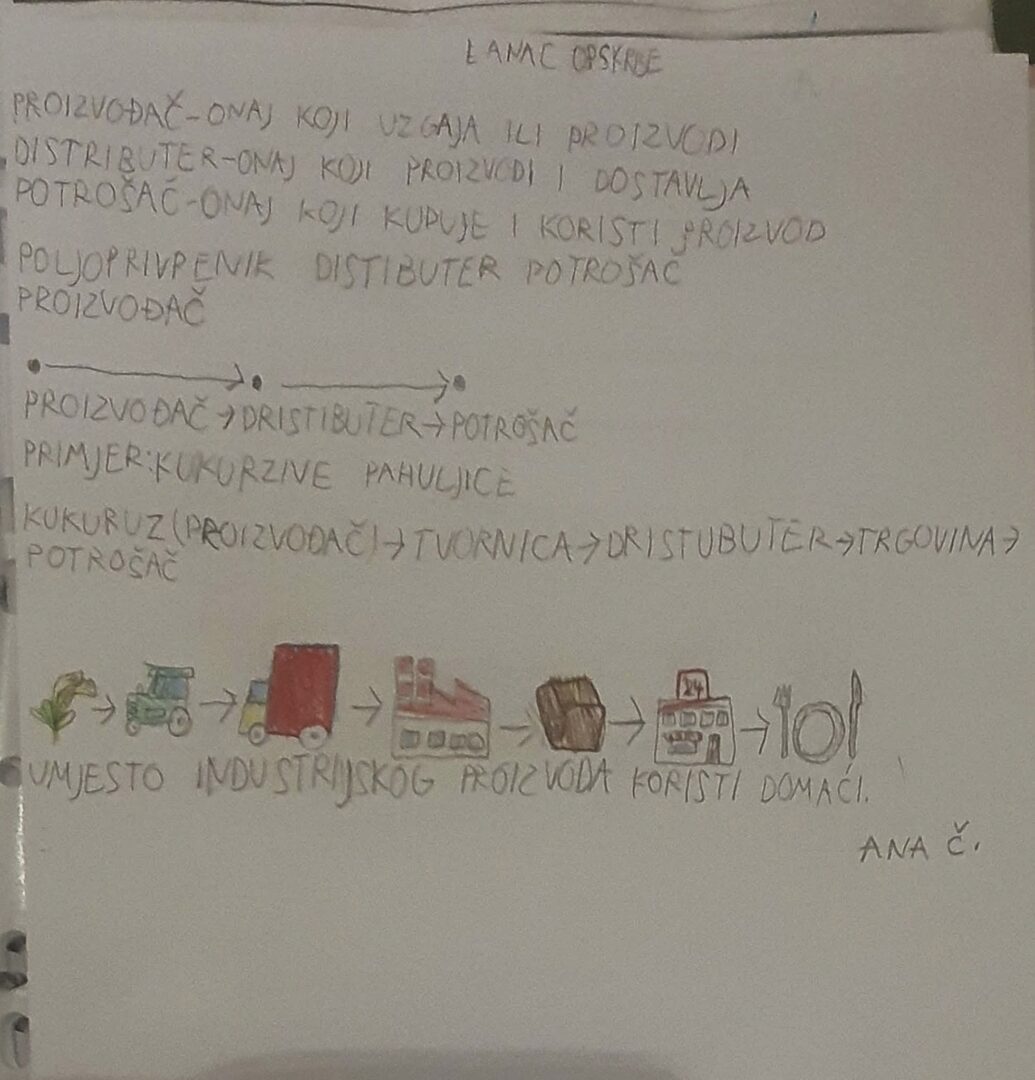 LANAC OPSKRBE
PROIZVOĐAČ-ONAJ KOJI UZGAJA ILI PROIZVODI
DISTRIBUTER-ONAJ KOJI PROIZVODI I DOSTAVLJA
POTROŠAČ-ONAJ KOJI KUPUJE I KORISTI PROIZVOD
POLJOPRIVPENIK DISTIBUTER POTROŠAČ
PROIZVOĐAČ
PROIZVOĐAČ→DRISTIBUTER→POTROŠAČ
PRIMJER:KUKURZIVE PAHULJICE
KUKURUZ(PROIZVOĐAČ)→TVORNICA→DRISTUBUTER→TRGOVINA→
POTROŠAČ
24
UMJESTO INDUSTRIJSKOG PROIZVODA KORISTI DOMAĆI.
ANA Č.